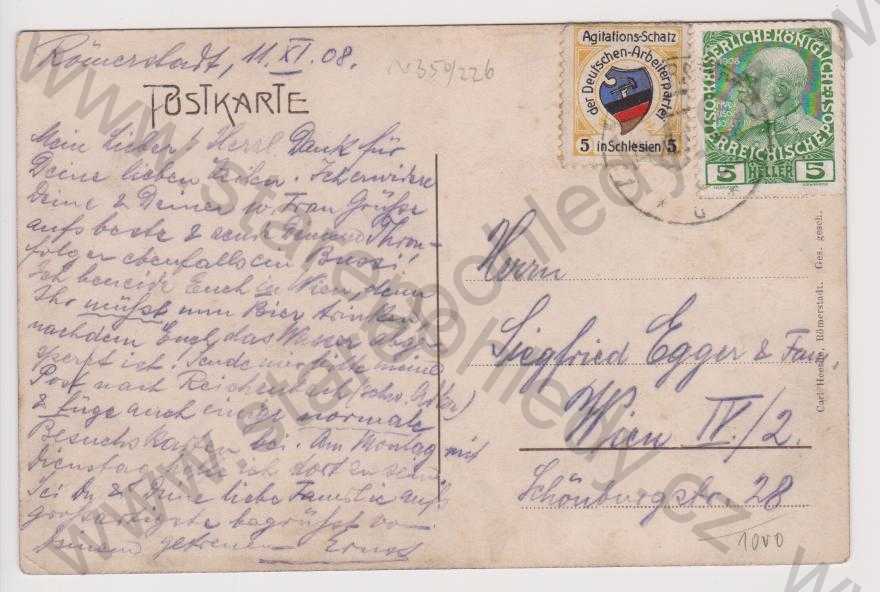 Römerstadt, 11. XI. 08.
N350/226
POSTKARTE
Mein Lieber! Herzl. Dank für
Deine lieben Zeilen. Ich erwidere
Deine & Deiner w. Frau Grüße
aufs beste & sende Deinem Thron-
folger ebenfalls ein Bussi!
Ich beneide Euch in Wien, denn
Ihr müßt nun Bier trinken
nachdem Euch das Wasser abge-
sperrt ist. Sende mir bitte meine
Post nach Reichenberg
& füge auch einige normale
Besuchskarten bei. Am Montag mit
Dienstag hoffe ich dort zu sein.
Sei Du & Deine liebe Familie auf
großartigste begrüßt von
Deinem getreuen Ernst
Agitations-Schatz
der Deutschen-Arbeiterpartei
5 in Schlesien 5
KAISERLICHE KÖNIGLICHE
ÖSTERREICHISCHE POST
1908
5 HELLER 5
Herrn
Siegfried Egger & Fam.
Wien IV./2.
Schönburgstr. 28
1000
Carl Römerstadt. Ges. gesch.
www.stare-pohledy.cz